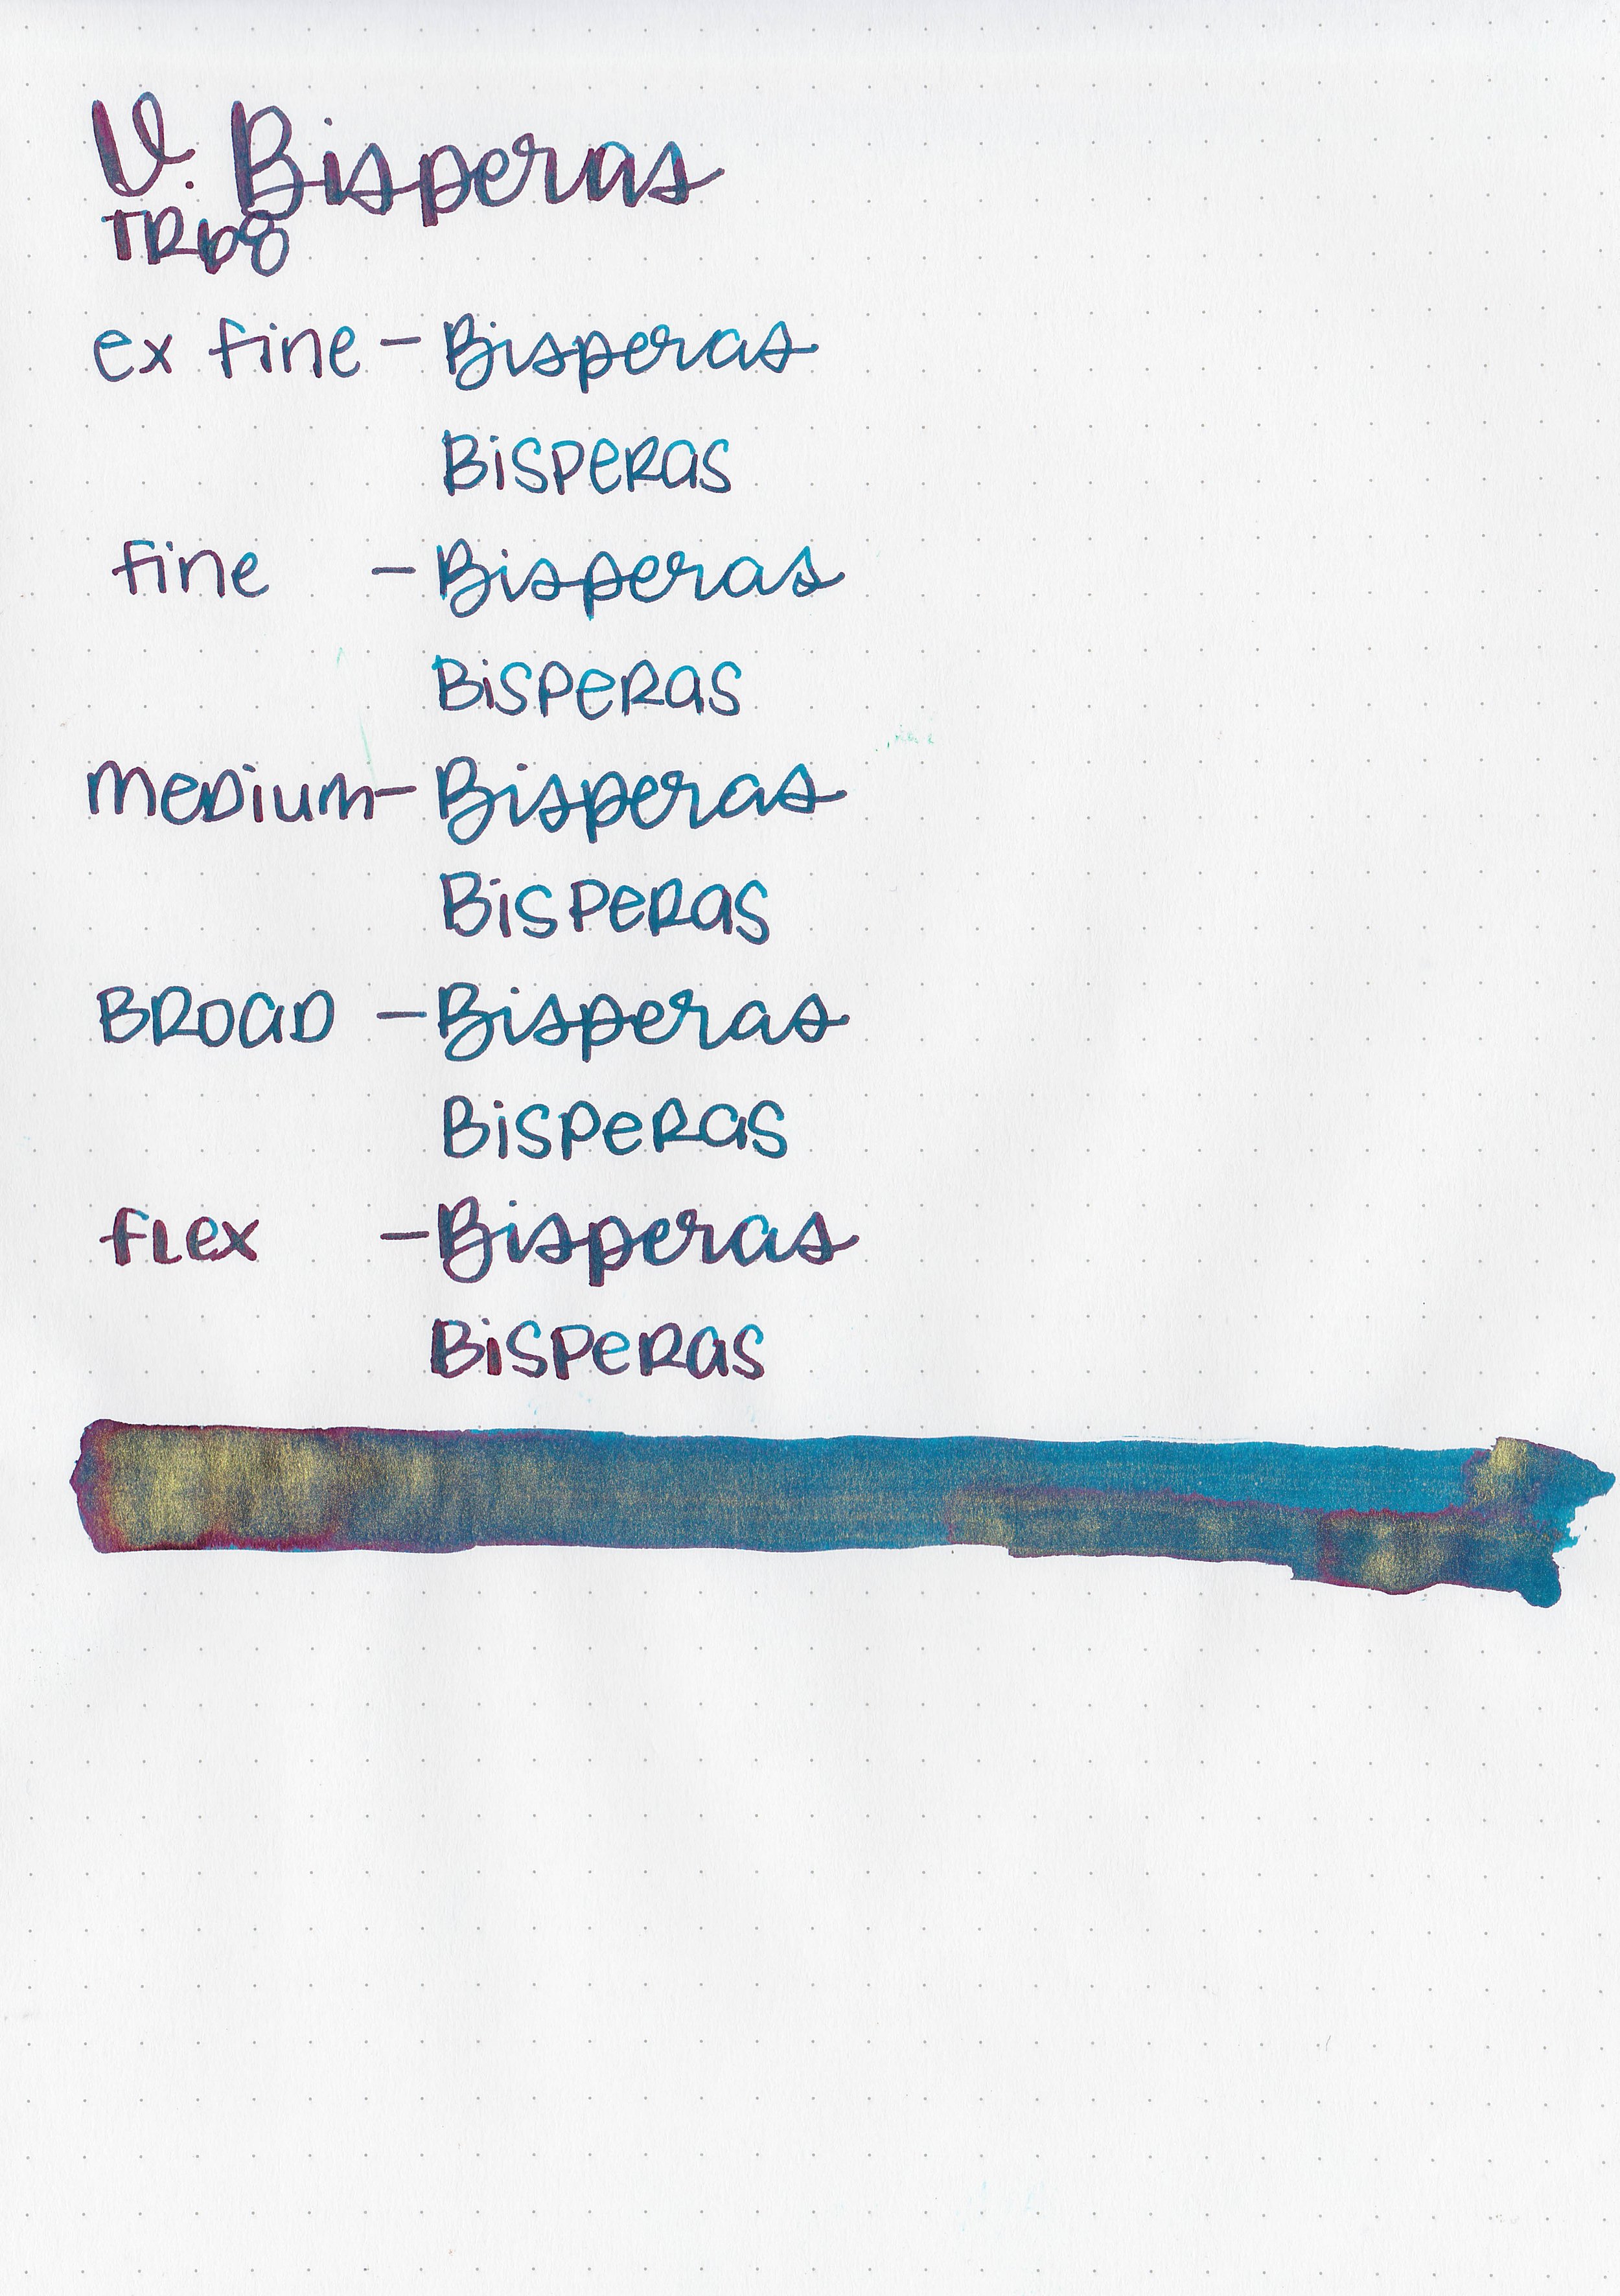 V. Bisperas
TR68
ex fine - Bisperas
BISPERAS
fine - Bisperas
BISPERAS
MEDIUM - Bisperas
BISPERAS
BROAD - Bisperas
BISPERAS
FLEX - Bisperas
BISPERAS